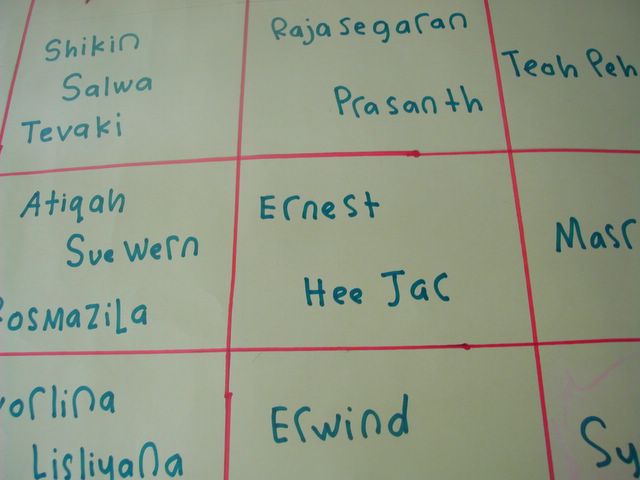 Shikin
Salwa
Tevaki
Rajasegaran
Prasanth
Teoh Peh
Atiqah
Sue Wern
Rosmazila
Ernest
Hee Jac
Masr
orlina
Lisliyana
Erwind
Sy